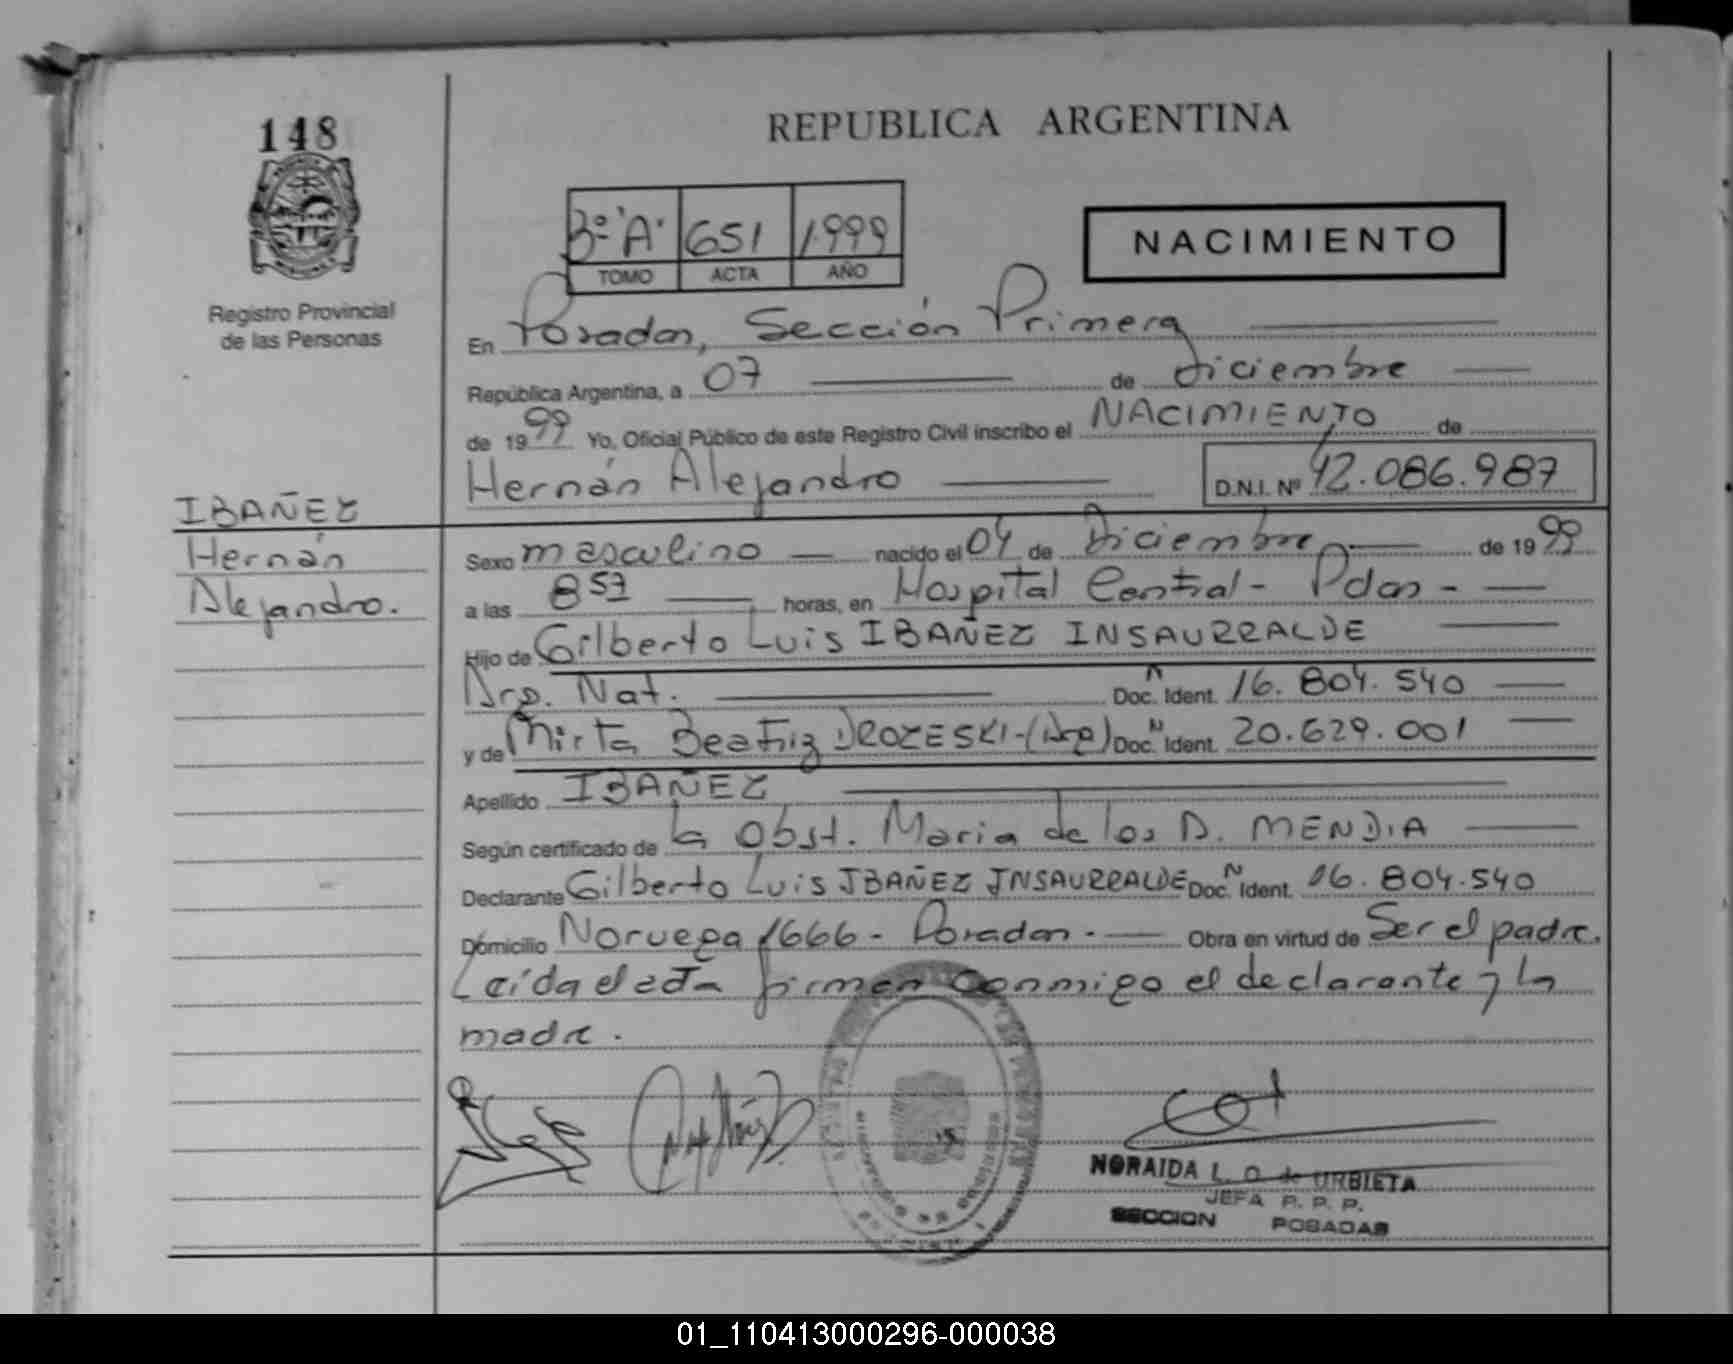 148
REPUBLICA ARGENTINA
3º "A" 651 1999
TOMO ACTA AÑO
NACIMIENTO
Registro Provincial
de las Personas
En Posadas, Sección Primera
República Argentina, a 07 de diciembre
de 1999 Yo, Oficial Público de este Registro Civil inscribo el NACIMIENTO de
Hernán Alejandro D.N.I. Nº 42.086.987
IBAÑEZ
Hernán
Alejandro.
Sexo masculino nacido el 04 de Diciembre de 1999
a las 8 57 horas, en Hospital Central - Pdas -
Hijo de Gilberto Luis IBAÑEZ INSAURRALDE
Arg. Nat. Doc. Ident. 16.804.540
y de Mirta Beatriz DROZESKI-(Arg) Doc. Ident. 20.629.001
Apellido IBAÑEZ
Según certificado de la Obst. Maria de los A. MENDIA
Declarante Gilberto Luis IBAÑEZ INSAURRALDE Doc. Ident. 16.804.540
Domicilio Noruega 1666 - Posadas - Obra en virtud de Ser el padre.
Leída el acta firman conmigo el declarante y la
madre.
NORAIDA L. O. de URBIETA
JEFA R. P. P.
SECCION POSADAS
01_110413000296-000038